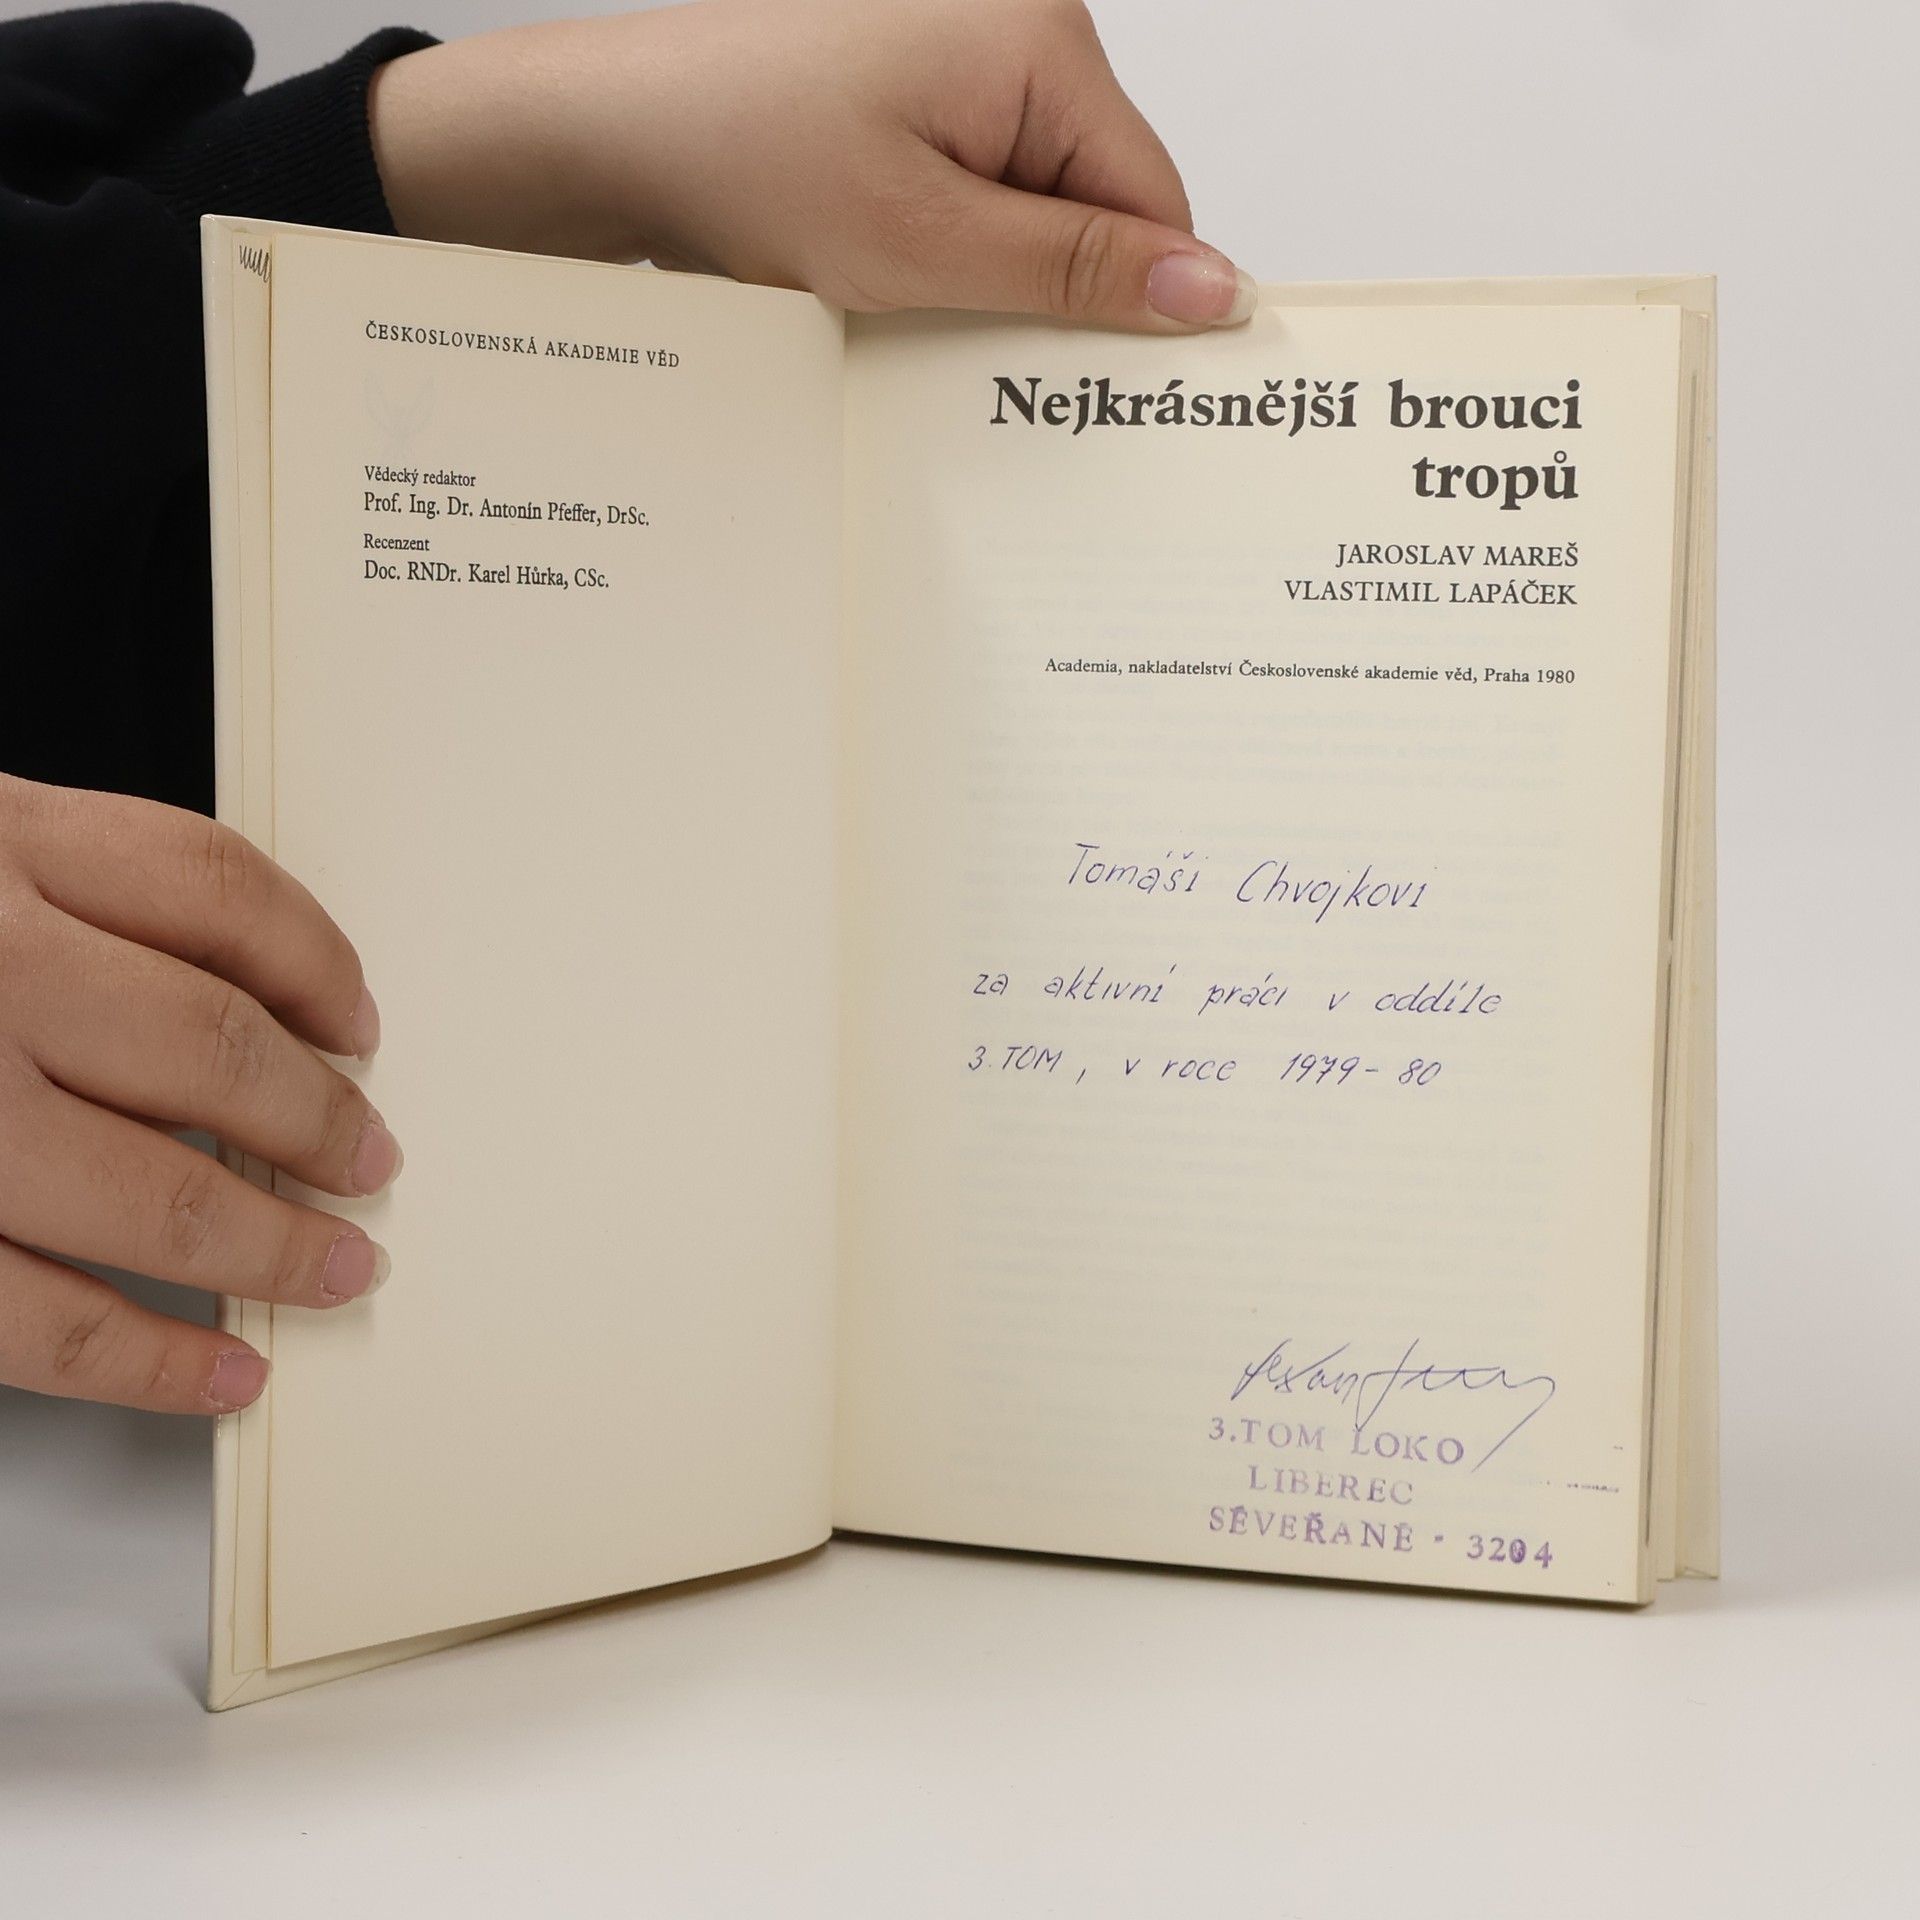 ČESKOSLOVENSKÁ AKADEMIE VĚD
Vědecký redaktor
Prof. Ing. Dr. Antonín Pfeffer, DrSc.
Recenzent
Doc. RNDr. Karel Hůrka, CSc.
Nejkrásnější brouci
tropů
JAROSLAV MAREŠ
VLASTIMIL LAPÁČEK
Academia, nakladatelství Československé akademie věd, Praha 1980
Tomáši Chvojkovi
za aktivní práci v oddíle
3. TOM, v roce 1979-80
3.TOM LOKO
LIBEREC
SEVEŘANÉ - 3204